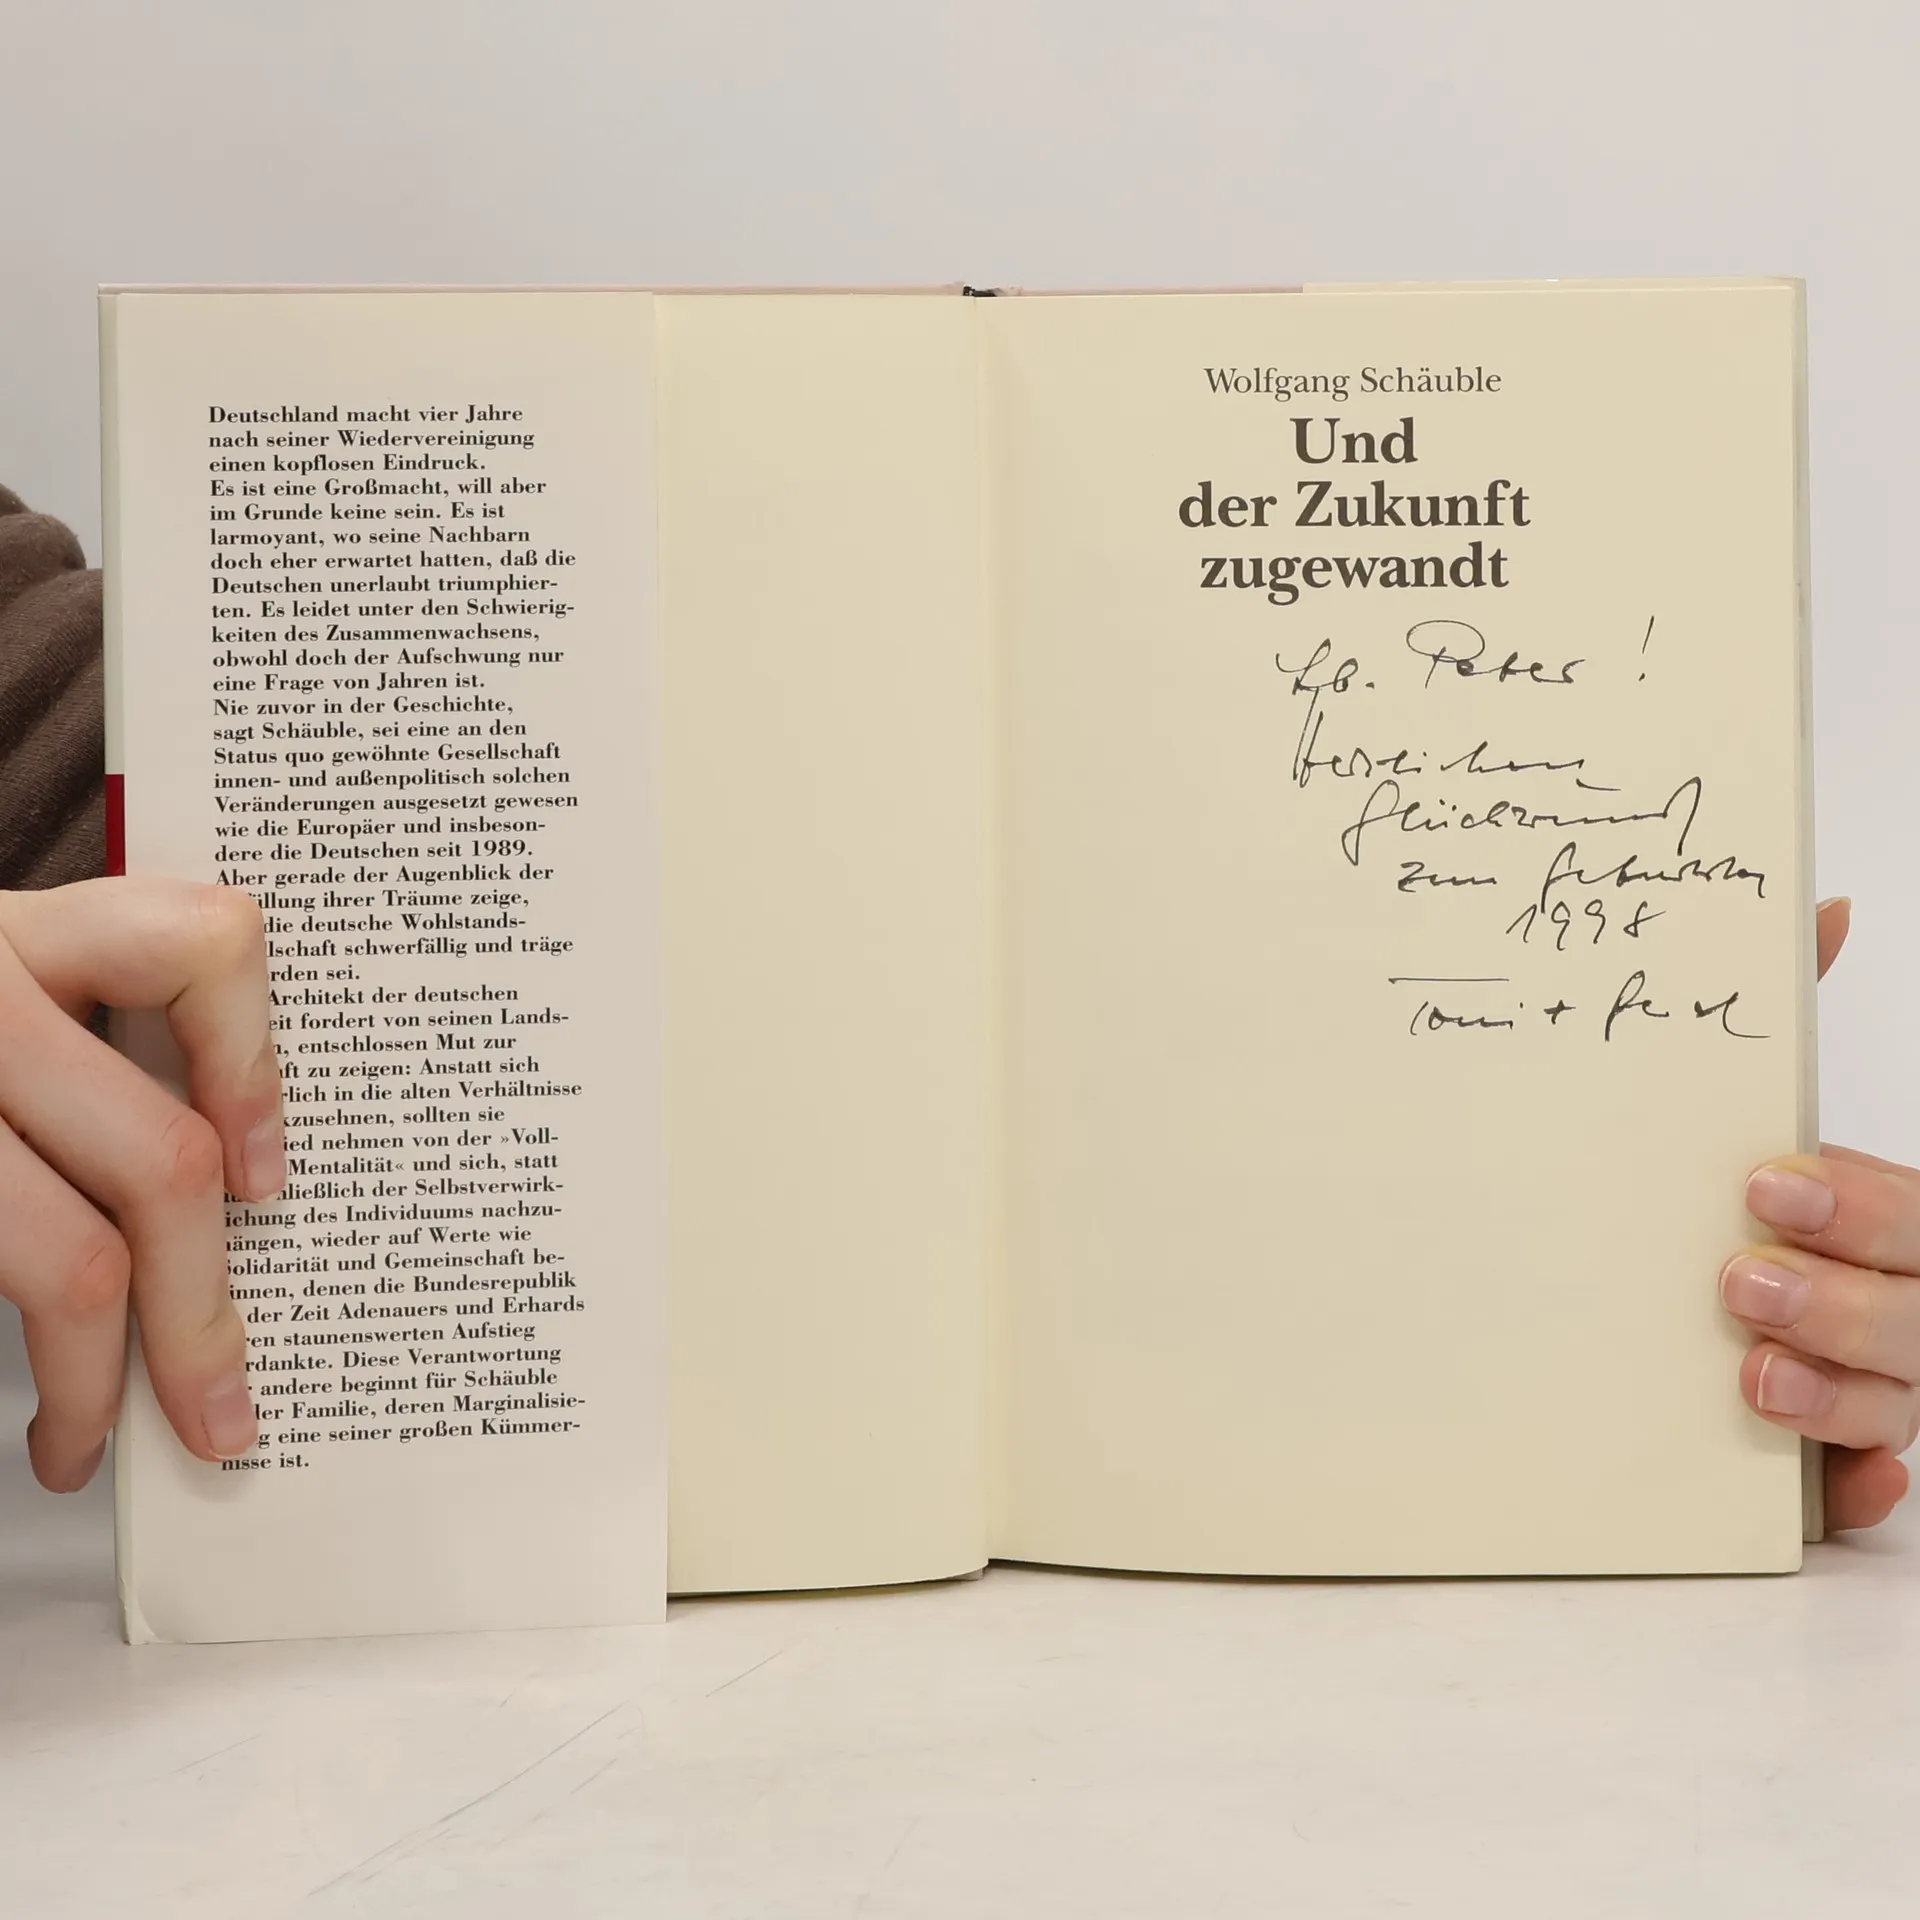 Deutschland macht vier Jahre
nach seiner Wiedervereinigung
einen kopflosen Eindruck.
Es ist eine Großmacht, will aber
im Grunde keine sein. Es ist
larmoyant, wo seine Nachbarn
doch eher erwartet hatten, daß die
Deutschen unerlaubt triumphier-
ten. Es leidet unter den Schwierig-
keiten des Zusammenwachsens,
obwohl doch der Aufschwung nur
eine Frage von Jahren ist.
Nie zuvor in der Geschichte,
sagt Schäuble, sei eine an den
Status quo gewöhnte Gesellschaft
innen- und außenpolitisch solchen
Veränderungen ausgesetzt gewesen
wie die Europäer und insbeson-
dere die Deutschen seit 1989.
Aber gerade der Augenblick der
illung ihrer Träume zeige,
die deutsche Wohlstands-
lschaft schwerfällig und träge
rden sei.
Architekt der deutschen
eit fordert von seinen Lands-
n, entschlossen Mut zur
ft zu zeigen: Anstatt sich
rlich in die alten Verhältnisse
kzusehnen, sollten sie
ied nehmen von der »Voll-
Mentalität« und sich, statt
ließlich der Selbstverwirk-
ichung des Individuums nachzu-
ängen, wieder auf Werte wie
olidarität und Gemeinschaft be-
innen, denen die Bundesrepublik
der Zeit Adenauers und Erhards
ren staunenswerten Aufstieg
rdankte. Diese Verantwortung
andere beginnt für Schäuble
der Familie, deren Marginalisie-
g eine seiner großen Kümmer-
nisse ist.
Wolfgang Schäuble
Und
der Zukunft
zugewandt
Lb. Peter!
Herzlichen
Glückwunsch
zum Geburtstag
1998
Toni +